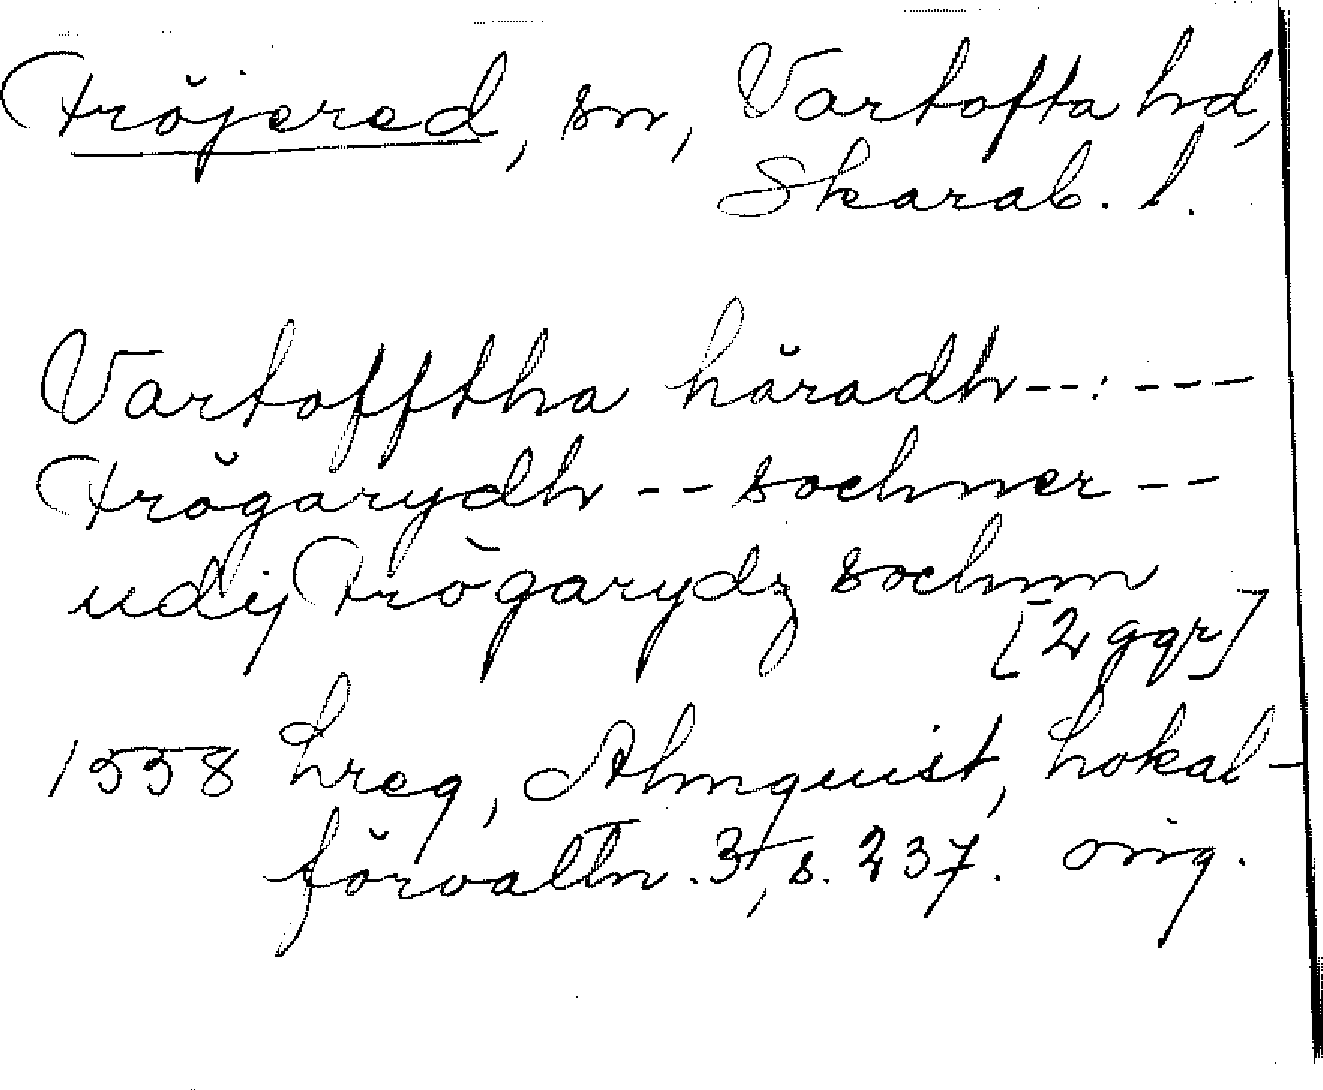 Fröjered, sn, Vartofta hd,
Skarab. l.
Vartofftha häradh--:---
Frögarydh -- sochner --
udij Frögarydz sochnn
[2 ggr]
1558 Lreg, Almquist, Lokal-
förvaltn. 3, s. 237. orig.